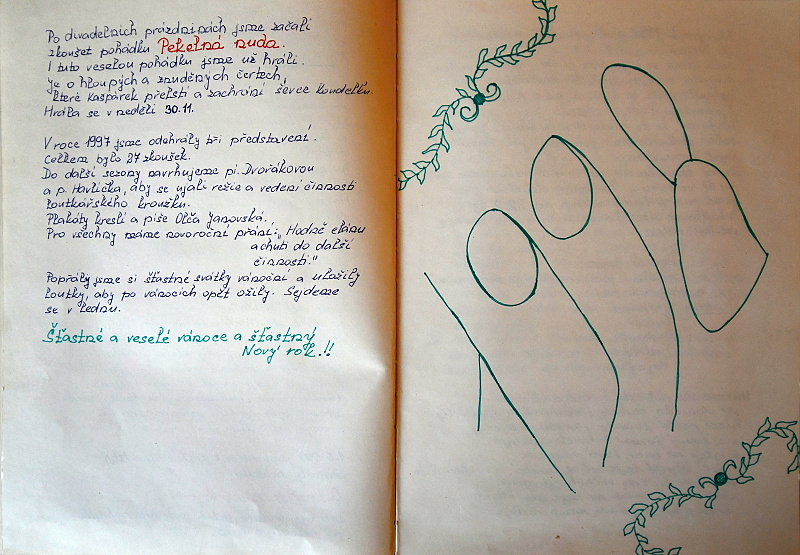 Po divadelních prázdninách jsme začali
zkoušet pohádku Pekelná nuda.
I tuto veselou pohádku jsme už hráli.
Je o hloupých a znuděných čertech,
které kašpárek přelstí a zachrání ševce koudelku.
Hrála se v neděli 30.11.
V roce 1997 jsme odehráli tři představení.
Celkem bylo 27 zkoušek.
Do další sezony navrhujeme pí. Dvořákovou
a p. Havlíčka, aby se ujali režie a vedení činnosti
loutkářského kroužku.
Plakáty kreslí a píše Olča Janovská.
Pro všechny máme novoroční přání: "Hodně elánu
a chuti do další
činnosti."
Popřály jsme si šťastné svátky vánoční a uložily
loutky, aby po vánocích opět ožily. Sejdeme
se v lednu.
Šťastné a veselé vánoce a šťastný
Nový rok!!